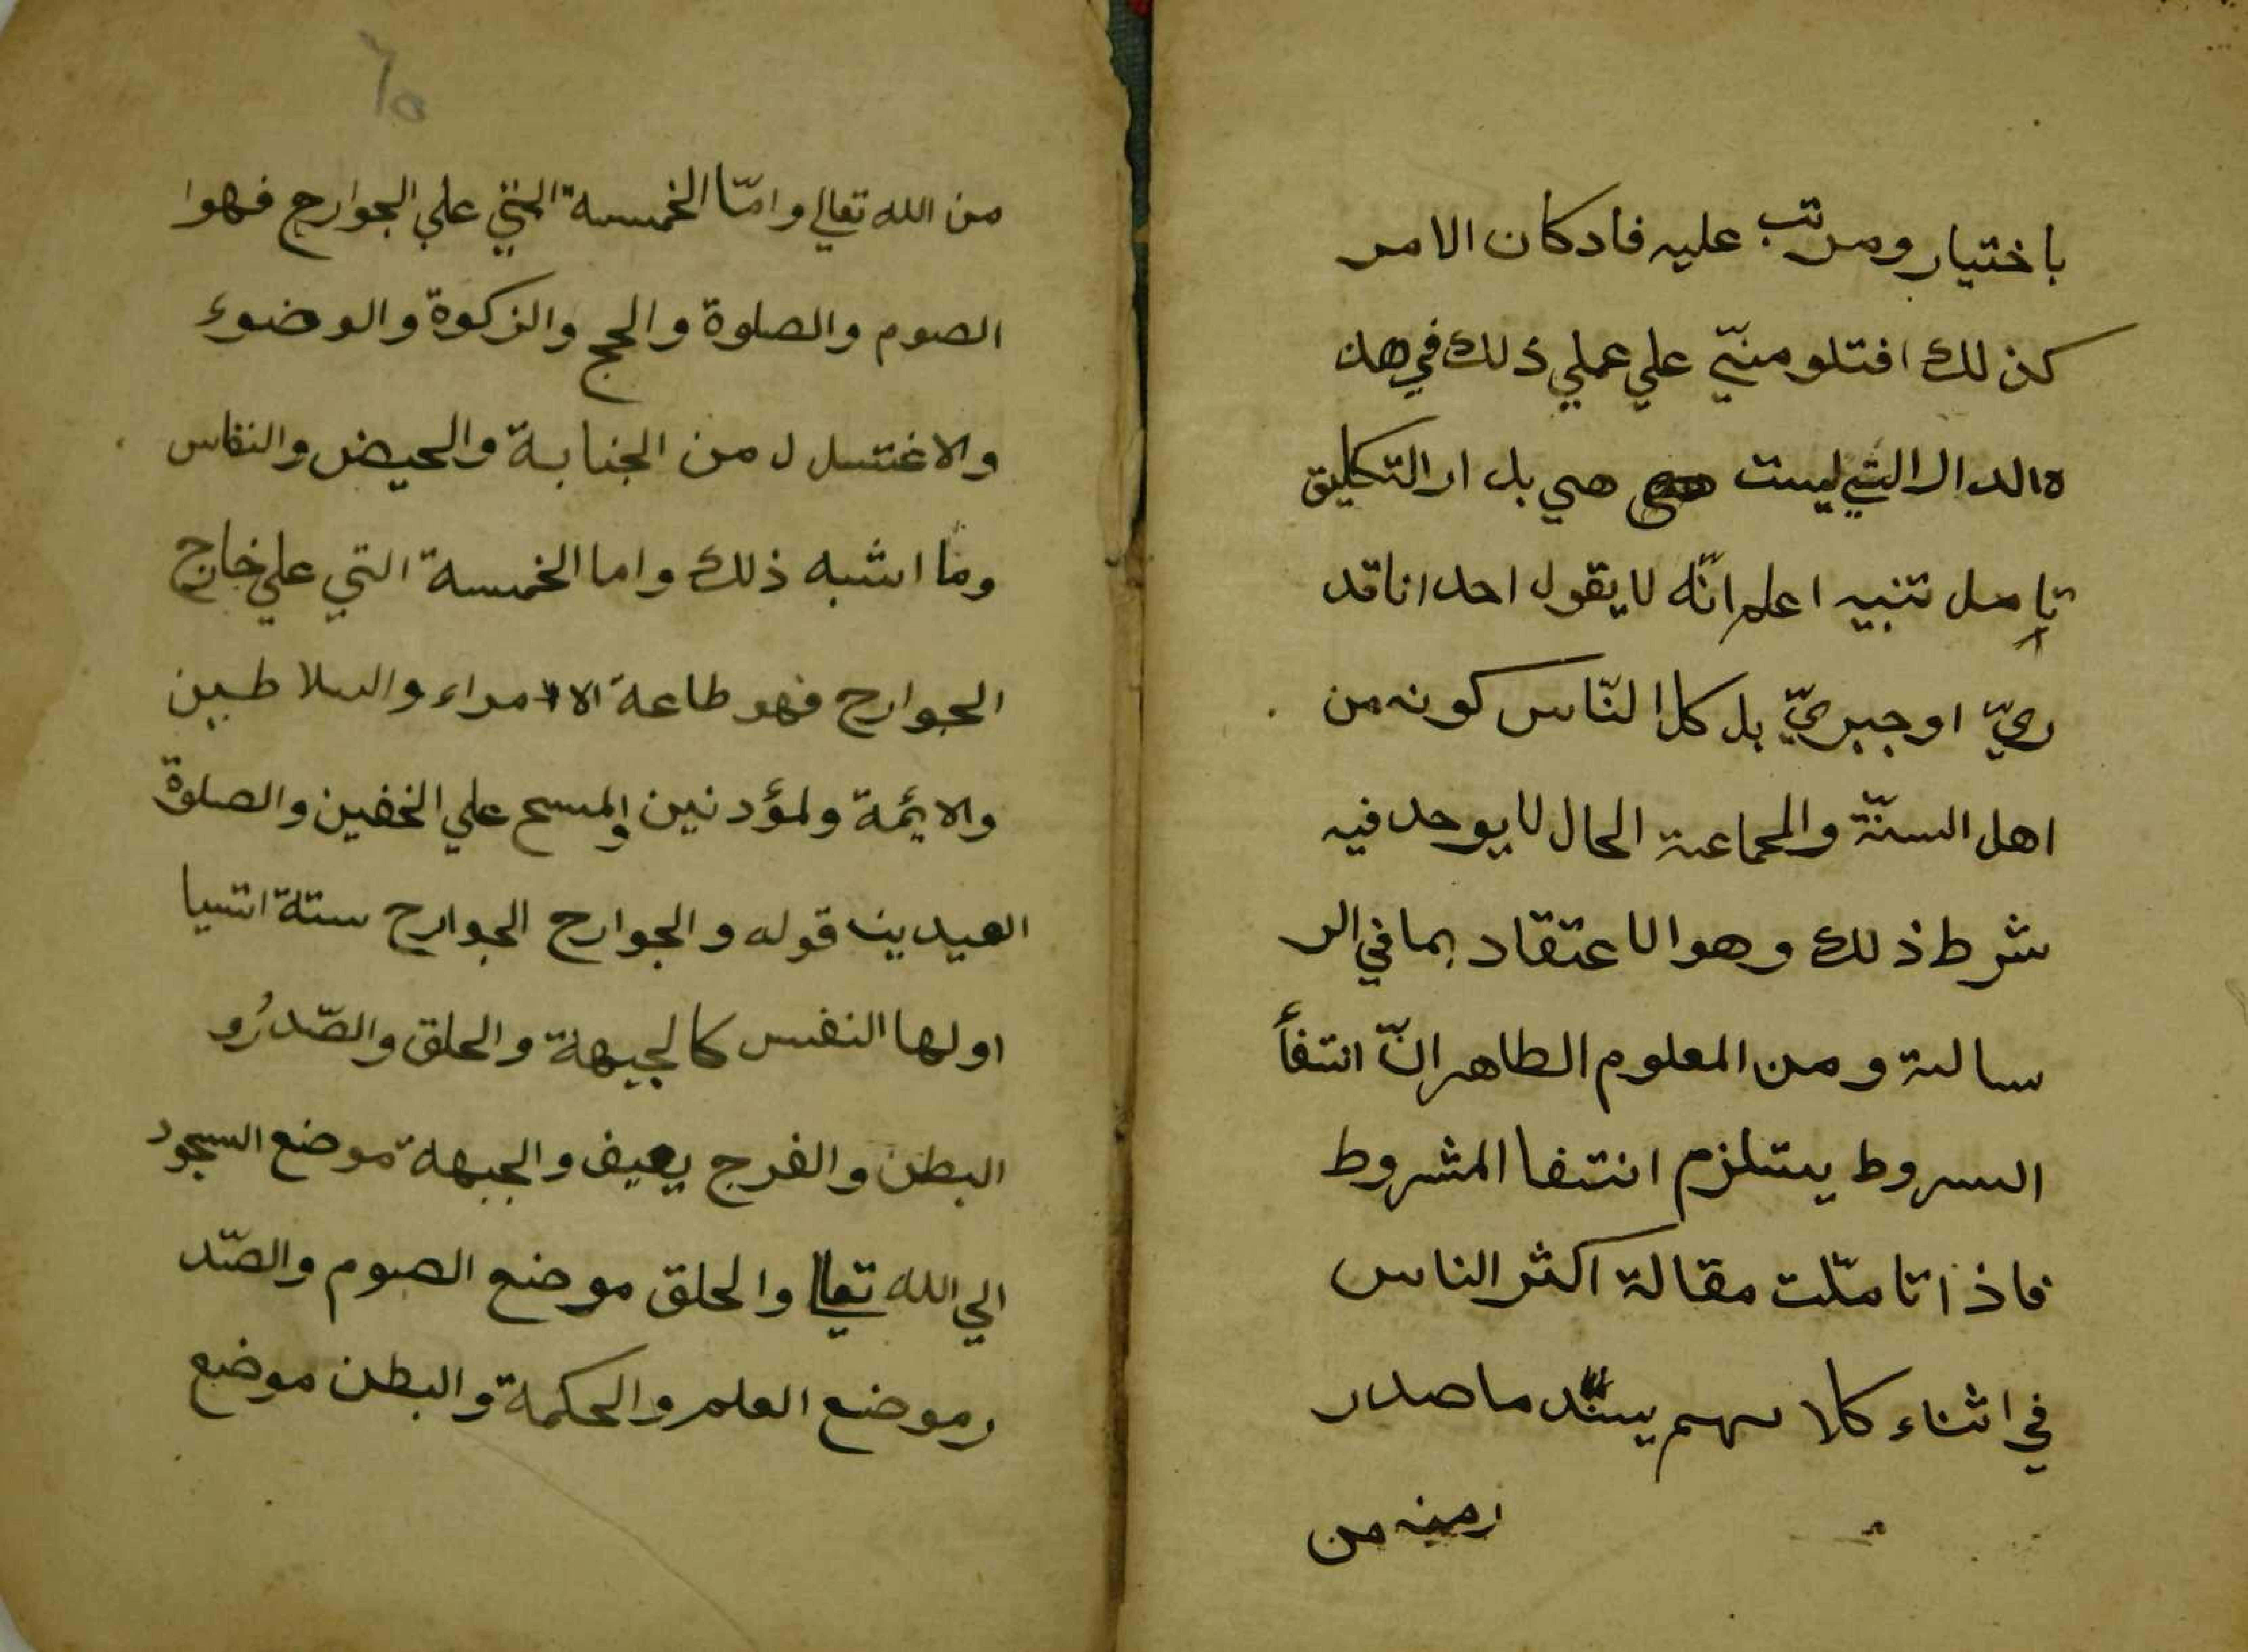 باختيار ومرتب عليه فادكان الامر
كذلك افتلومنيّ علي عملي ذلك في هذ
ه الدالرالتي ليست هي بل ارالتكليق
تامل تنبيه اعلم انّه لا يقول احد اناقد
ريّ اوجبريّ بل كل النّاس كونه من
اهل السنّة والجماعة الحال لا يوحد فيه
شرط ذلك وهو الاعتقاد بما في الر
سالة ومن المعلوم الطاهر انّ انتفأ
السروط يستلزم انتفا المشروط
فاذا تامّلت مقالة اكثر الناس
في اثناء كلا مهم يسنّد ما صدر
رمنه من
٦٥
من الله تعالي وامّا الخمسة التي علي الجوارح فهوا
الصوم والصلوة والحج والزكوة والوضوء
والاغتسل ل من الجنابة والحيض والنفاس
وما اشبه ذلك واما الخمسة التي علي خارج
الجوارح فهو طاعة الامراء والسلاطين
والايمة ولمؤدنين والمسح علي الخفين والصلوة
العيدين قوله والجوارح الجوارح ستة اشيا
اولها النفس كالجيهة والحلق والصّدرُو
البطن والفرج يعيف والجبهة موضع السجود
الي الله تعالي والحلق موضع الصوم والصّد
رموضع العلم والحكمة والبطن موضع